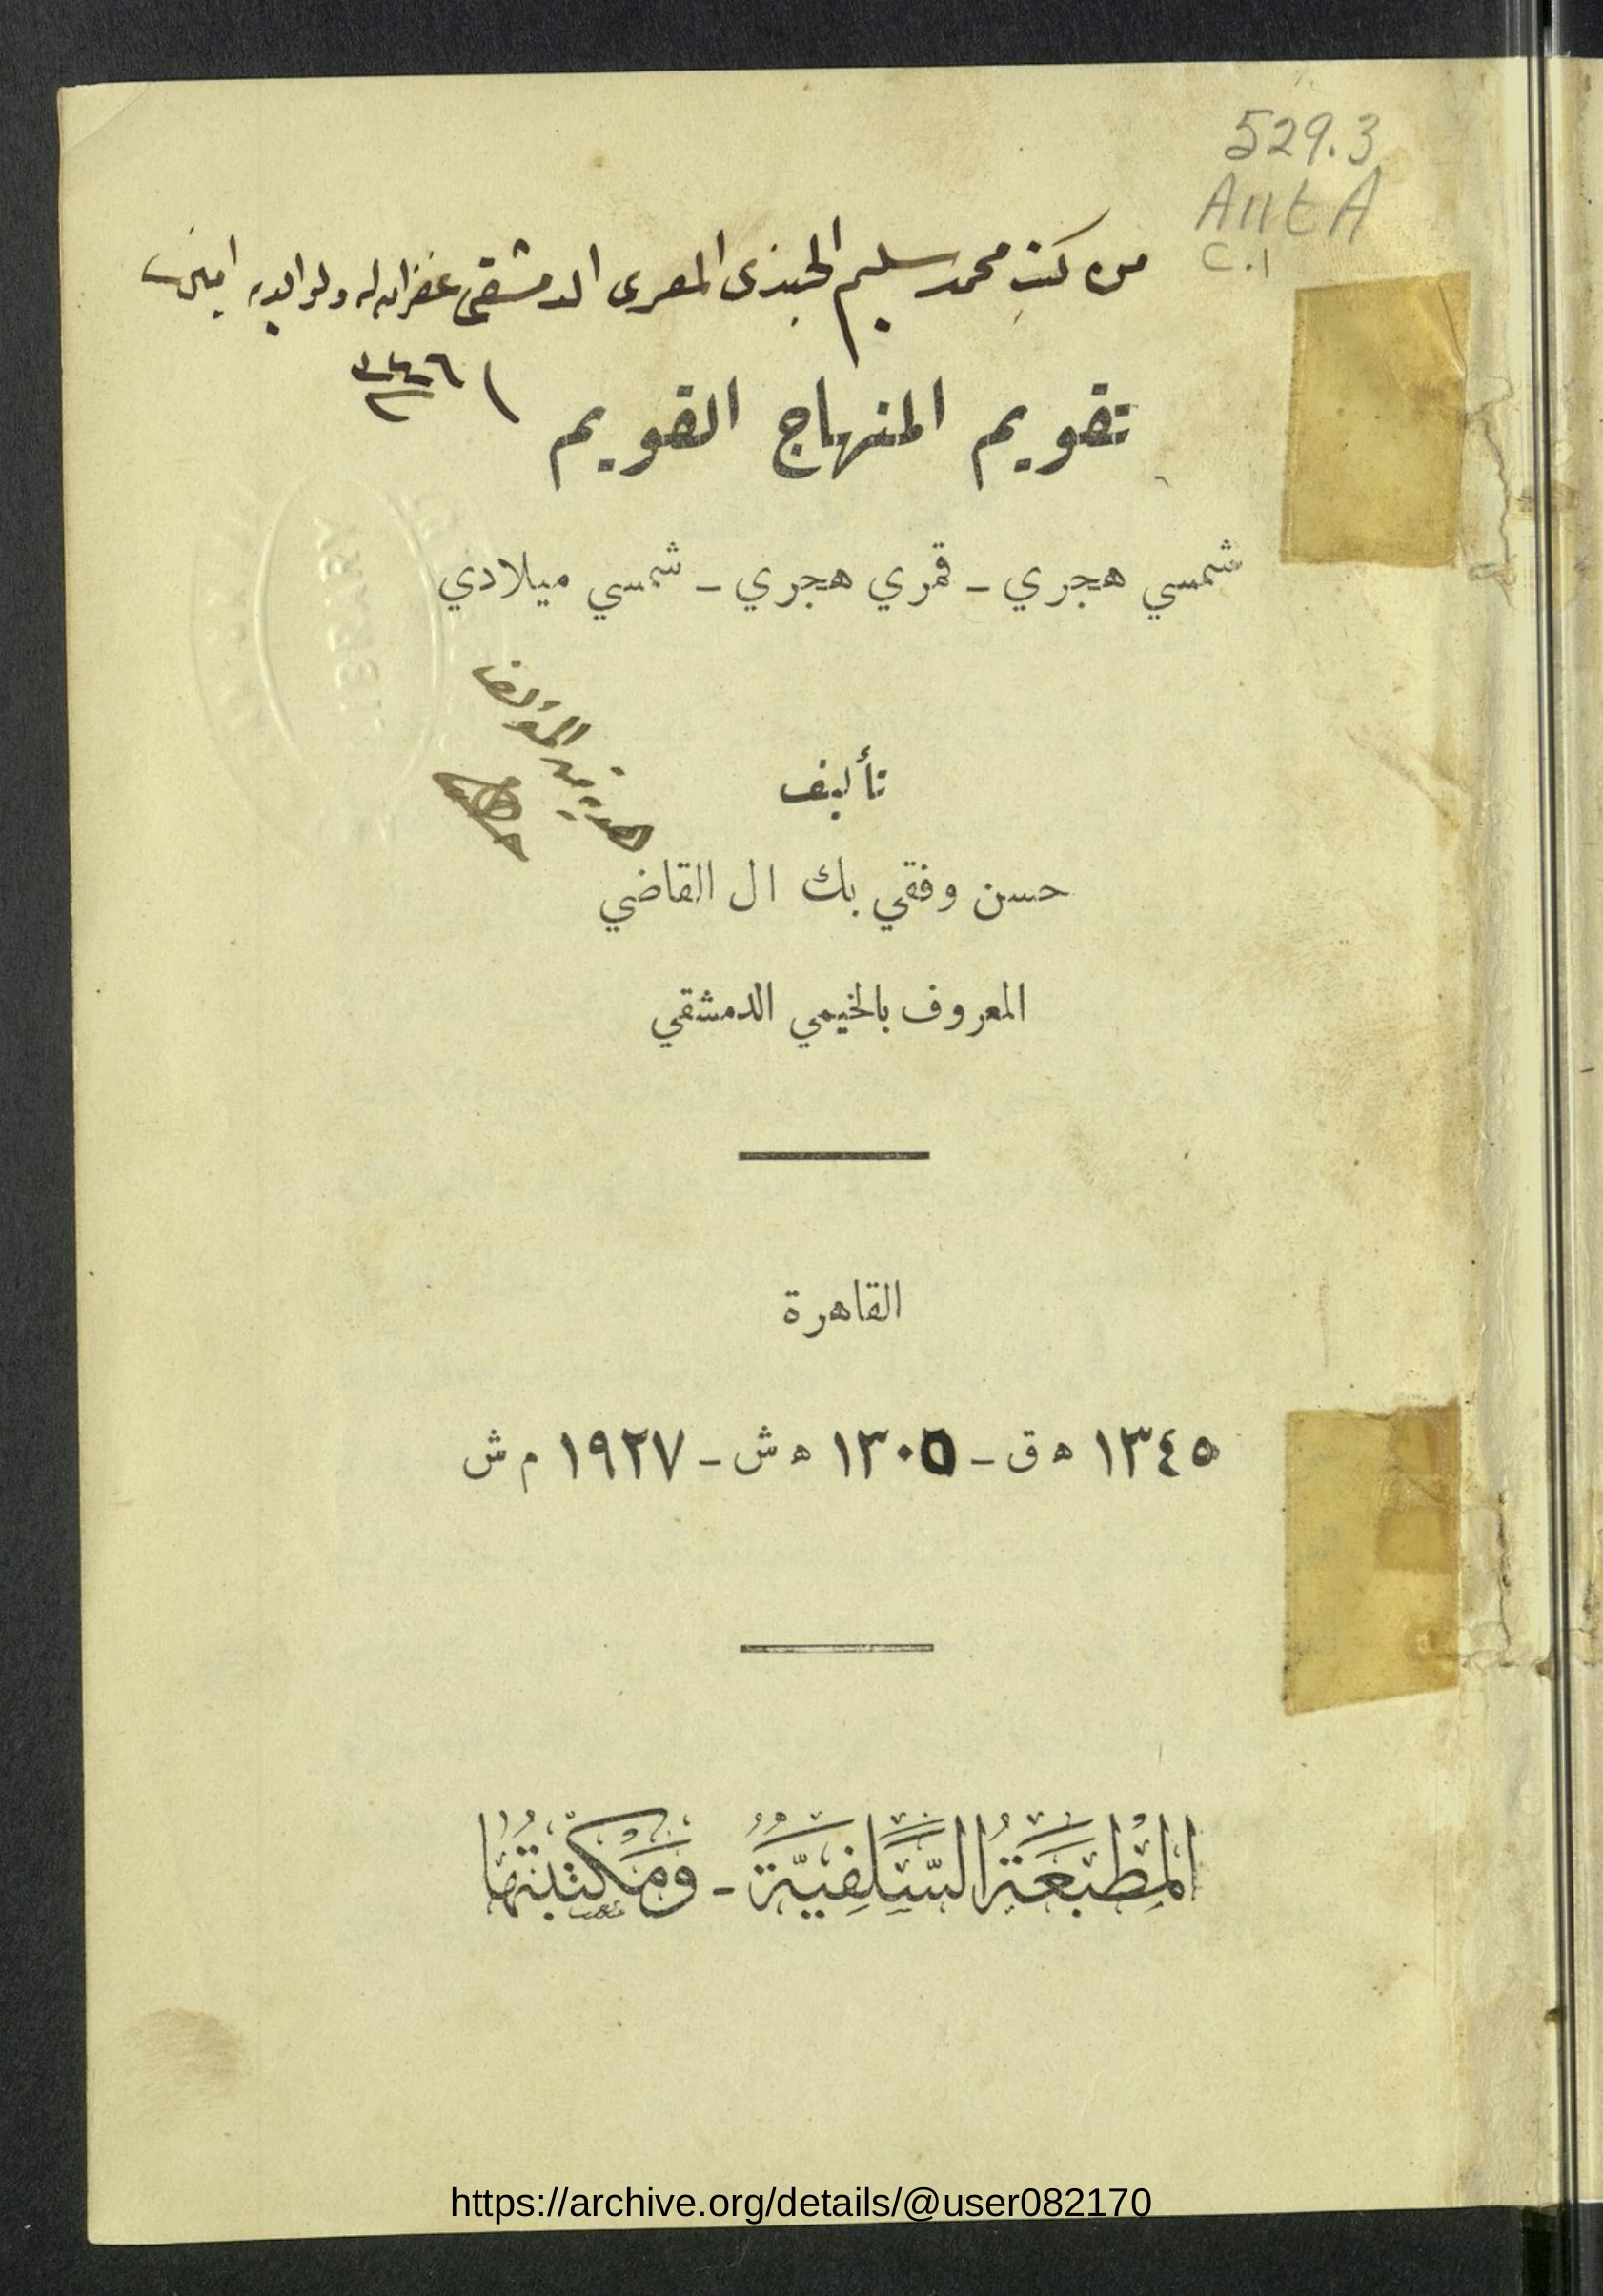 529.3
A11tA
C.1
من كتب محمد سليم الجندي المعري الدمشقي غفر الله له ولوالديه امين
تقويم المنهاج القويم
شمسي هجري - قمري هجري - شمسي ميلادي
هدية من المؤلف
تأليف
حسن وفقي بك ال القاضي
المعروف بالخيمي الدمشقي
القاهرة
١٣٤٥ ه ق - ١٣٠٥ ه ش - ١٩٢٧ م ش
المَطْبَعَةُ السَّلَفِيَّةُ - وَمَكْتَبَتُهَا
LIBRARY
https://archive.org/details/@user082170